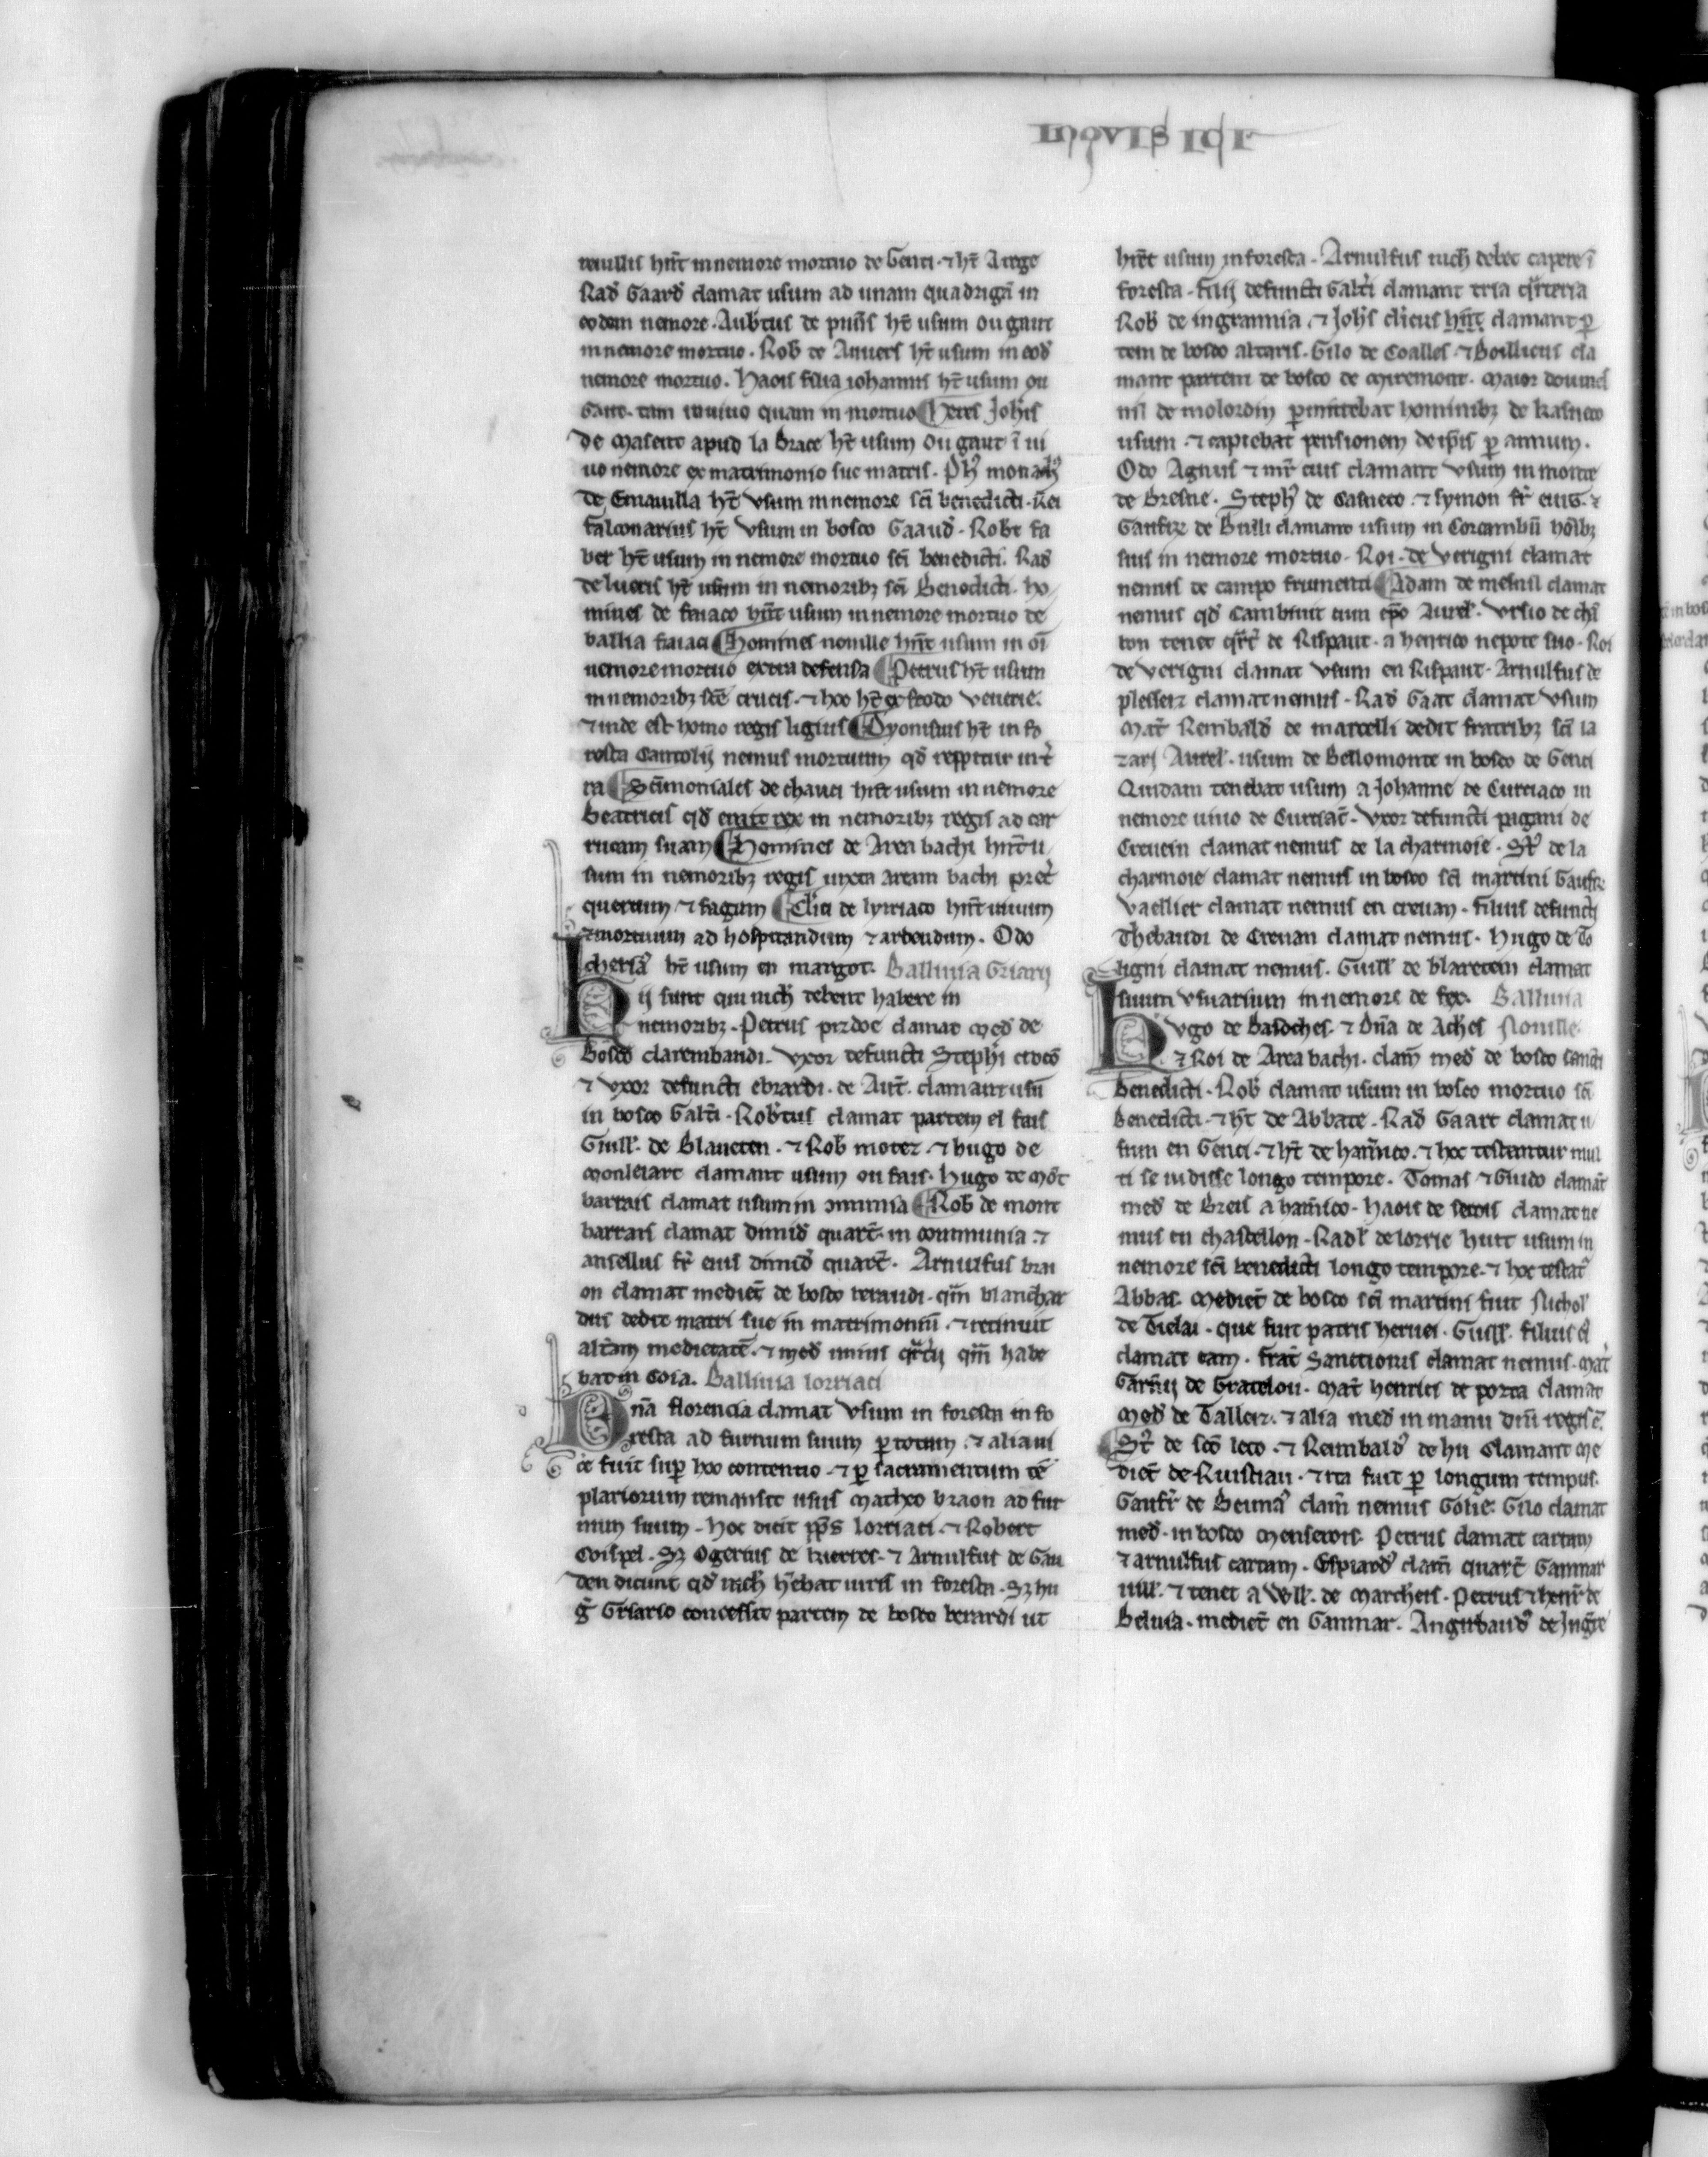 Inqvisicio
hn̄t in nemore mortuo de Genci ⁊ hr̄ a rege
Rad̓ Gaard̓ clamat usum ad unam quadrigā in
eodem nemore. Aubtus de hr̄ usum ou gaut
in nemore mortuo. Rob̓ de Anuers hr̄ usum in eod̓
nemore mortuo. Haois filia iohannis hr̄ usum ou
Gaut. tam in uiuo quam in mortuo ¶ heres Joh̓is
de Masere apud la brace hr̄ usum ou gaut ī ui
uo nemore ex matrimonio sue matris. Ph̓ monach̓
de Emauilla hr̄ vsum in nemore sc̄i benedicti.
falconarius hr̄ vsum in bosco Gaaud̓. Robt fa
ber hr̄ usum in nemore mortuo sc̄i benedicti. Rad̓
de lueris hr̄ usum in nemoribꝫ sc̄i Benedicti. ho
mines de faiaco hn̄t usum in nemore mortuo de
ballia faiaci ¶ homines nouille hn̄t usum in oī
nemore mortuo extra defensa ¶ Petrus hr̄ usum
in nemoribꝫ sc̄e crucis. ⁊ hoc hr̄ ex feodo venerie.
⁊ inde est homo regis ligius ¶ Dyonisius hr̄ in fo
resta Cantolij nemus mortuum qd̓ in t̓
ra ¶ Sc̄imoniales de chauci hn̄t usum in nemore
Beatricis qd̓ emit rex in nemoribꝫ regis ad car
rucam suam ¶ Homines de Area bachi hn̄t u
sum in nemoribꝫ regis iuxta aream bachi pret̓
quercum ⁊ fagum ¶ Cl̓ici de lyrriaco hn̄t uiuum
⁊ mortuum ad hospitandum ⁊ ardendum. Odo
hr̄ usum en margot. Balliuia Griarij
Hij sunt qui nich̓ debent habere in
nemoribꝫ. Petrus pizdoe clamat med̓ de
Bosco clarembaudi. vxor defuncti Steph̓i
⁊ vxor defuncti ebrardi. de Aur̓. clamant usū
in bosco Galt̓i. Rob̓tus clamat partem el fais
Guill̓. de Blaneten. ⁊ Rob̓ motez. ⁊ hugo de
monleiart clamant usum ou fais. Hugo de mōt
barrais clamat usum in ꝯmunia ¶ Rob̓ de mont
barrais clamat dimid̓ quart̓. in communia. ⁊
ansellus fr̄ eius dimid̓ quart̓. Arnulfus brai
on clamat mediet̓ de bosco beraudi. qm̄ blanchar
dus dedit matri sue in matrimoniū. ⁊ retinuit
alt̓am medietatē. ⁊ med̓ unius qrt̓ij qm̄ habe
bat in Coīa. Balliuia lorriaci
Dn̄a florencia clamat vsum in foresta in fo
resta ad furnum suum ꝑ totum. ⁊ alia ui
ce fuit sup̄ hoc contentio. ⁊ ꝑ sacramentum tē
plariorum remansit usus Matheo braon ad fur
num suum. Hoc dicit pp̄s lorriaci. ⁊ Robert
Coispel. Sꝫ Ogerius de ⁊ Arnulfus de Gau
den dicunt qd̓ nich̓ h̓ebat iuris in foresta. Sꝫ hu
g̓ Griario concessit partem de bosco berardi ut
hr̄et usum in foresta. Arnulfus nich̓ debet capere ī
foresta. filij defuncti Galt̓i clamant tria qr̓teria
Rob̓ de ingrannia. ⁊ Joh̓s cl̓icus hn̄t clamant ꝑ
tem de bosco altaris. Gilo de Coalles. ⁊ Boillicus cla
mant partem de bosco de Miremont. Maior
nil de molordin ꝑmittebat hominibꝫ de kasneto
usum. ⁊ capiebat pensionem de ip̄is ꝑ annum.
Odo Agnus ⁊ mr̄ eius clamant vsum in monte
de Bresne. Steph̓ de Casneto. ⁊ symon fr̄ eius. ⁊
Gaufr̓ de Bulli clamant usum in hōibꝫ
suis in nemore mortuo. Roi. de verigni clamat
nemus de campo frumenti ¶ Adam de mesnil clamat
nemus qd̓ Cambiuit cum ep̄o Aurel̓. vrsio de
ton tenet qr̓t̓ de Rispaut. a henrico nepote suo. Roi
de verigni clamat vsum en Rispaut. Arnulfus de
plesseiz clamat nemus. Rad̓ Gaat clamat vsum
Mat̓ Rembald̓ de marcelli dedit fratribꝫ sc̄i la
zari Aurel̓. usum de Bellomonte in bosco de Genci
Quidam tenebat usum a Johanne de Curciaco in
nemore uiuo de Curciac̓. vxor defuncti pagani de
Creuen clamat nemus de la charmoie. St̓ de la
charmoie clamat nemus in bosco sc̄i martini Gaufr̓
vaellier clamat nemus en creuan. filius defuncti
Thebaudi de Creuan clamat nemus. Hugo de Do
ligni clamat nemus. Guill̓ de blareten clamat
suum vsuarium in nemore de fec. Balliuia
Hvgo de Basoches. ⁊ dn̄a de Aches Nouille
⁊ Roi de Area bachi. clam̄ med̓ de bosco sancti
Benedicti. Rob̓ clamat usum in bosco mortuo sc̄i
Benedicti. ⁊ hr̄ de Abbate. Rad̓ Gaart clamat u
sum en Genci. ⁊ hr̄ de ham̄ico. ⁊ hoc testantur mul
ti se uidisse longo tempore. Tomas ⁊ Guido clamāt
med̓ de Breis a ham̄ico. Haois de secois clamat ne
mus en chastellon. Radl̓ de lorrie huit usum in
nemore sc̄i benedicti longo tempore. ⁊ hoc testat̓
Abbas. Mediet̓ de bosco sc̄i martini fuit Nichol̓
de Vielai. que fuit patris heruei. Guill̓. filius ei̓
clamat eam. frat̓ Sanctionis clamat nemus. mat̓
Garn̓ij de Gratelou. Mat̓ henrici de porta clamat
Med̓ de Talleiz. ⁊ alia med̓ in manu dn̄i regis ē.
¶ St̓ de sco leco. ⁊ Reimbald̓ de hu Clamant me
diet̓ de Ruistiau. ⁊ ita fuit ꝑ longum tempus.
Gaufr̓ de clam̄ nemus Golie. Gilo clamat
med̓. in bosco Petrus clamat cartam
⁊ arnulfus cartam. Espiard̓ clam̄ quart̓ Ganmar
uill̓. ⁊ tenet a Will̓. de Marcheis. Petrus ⁊ henr̓ de
Beluia. mediet̓ en Ganmar. Angubaud̓ de Ingr̄e